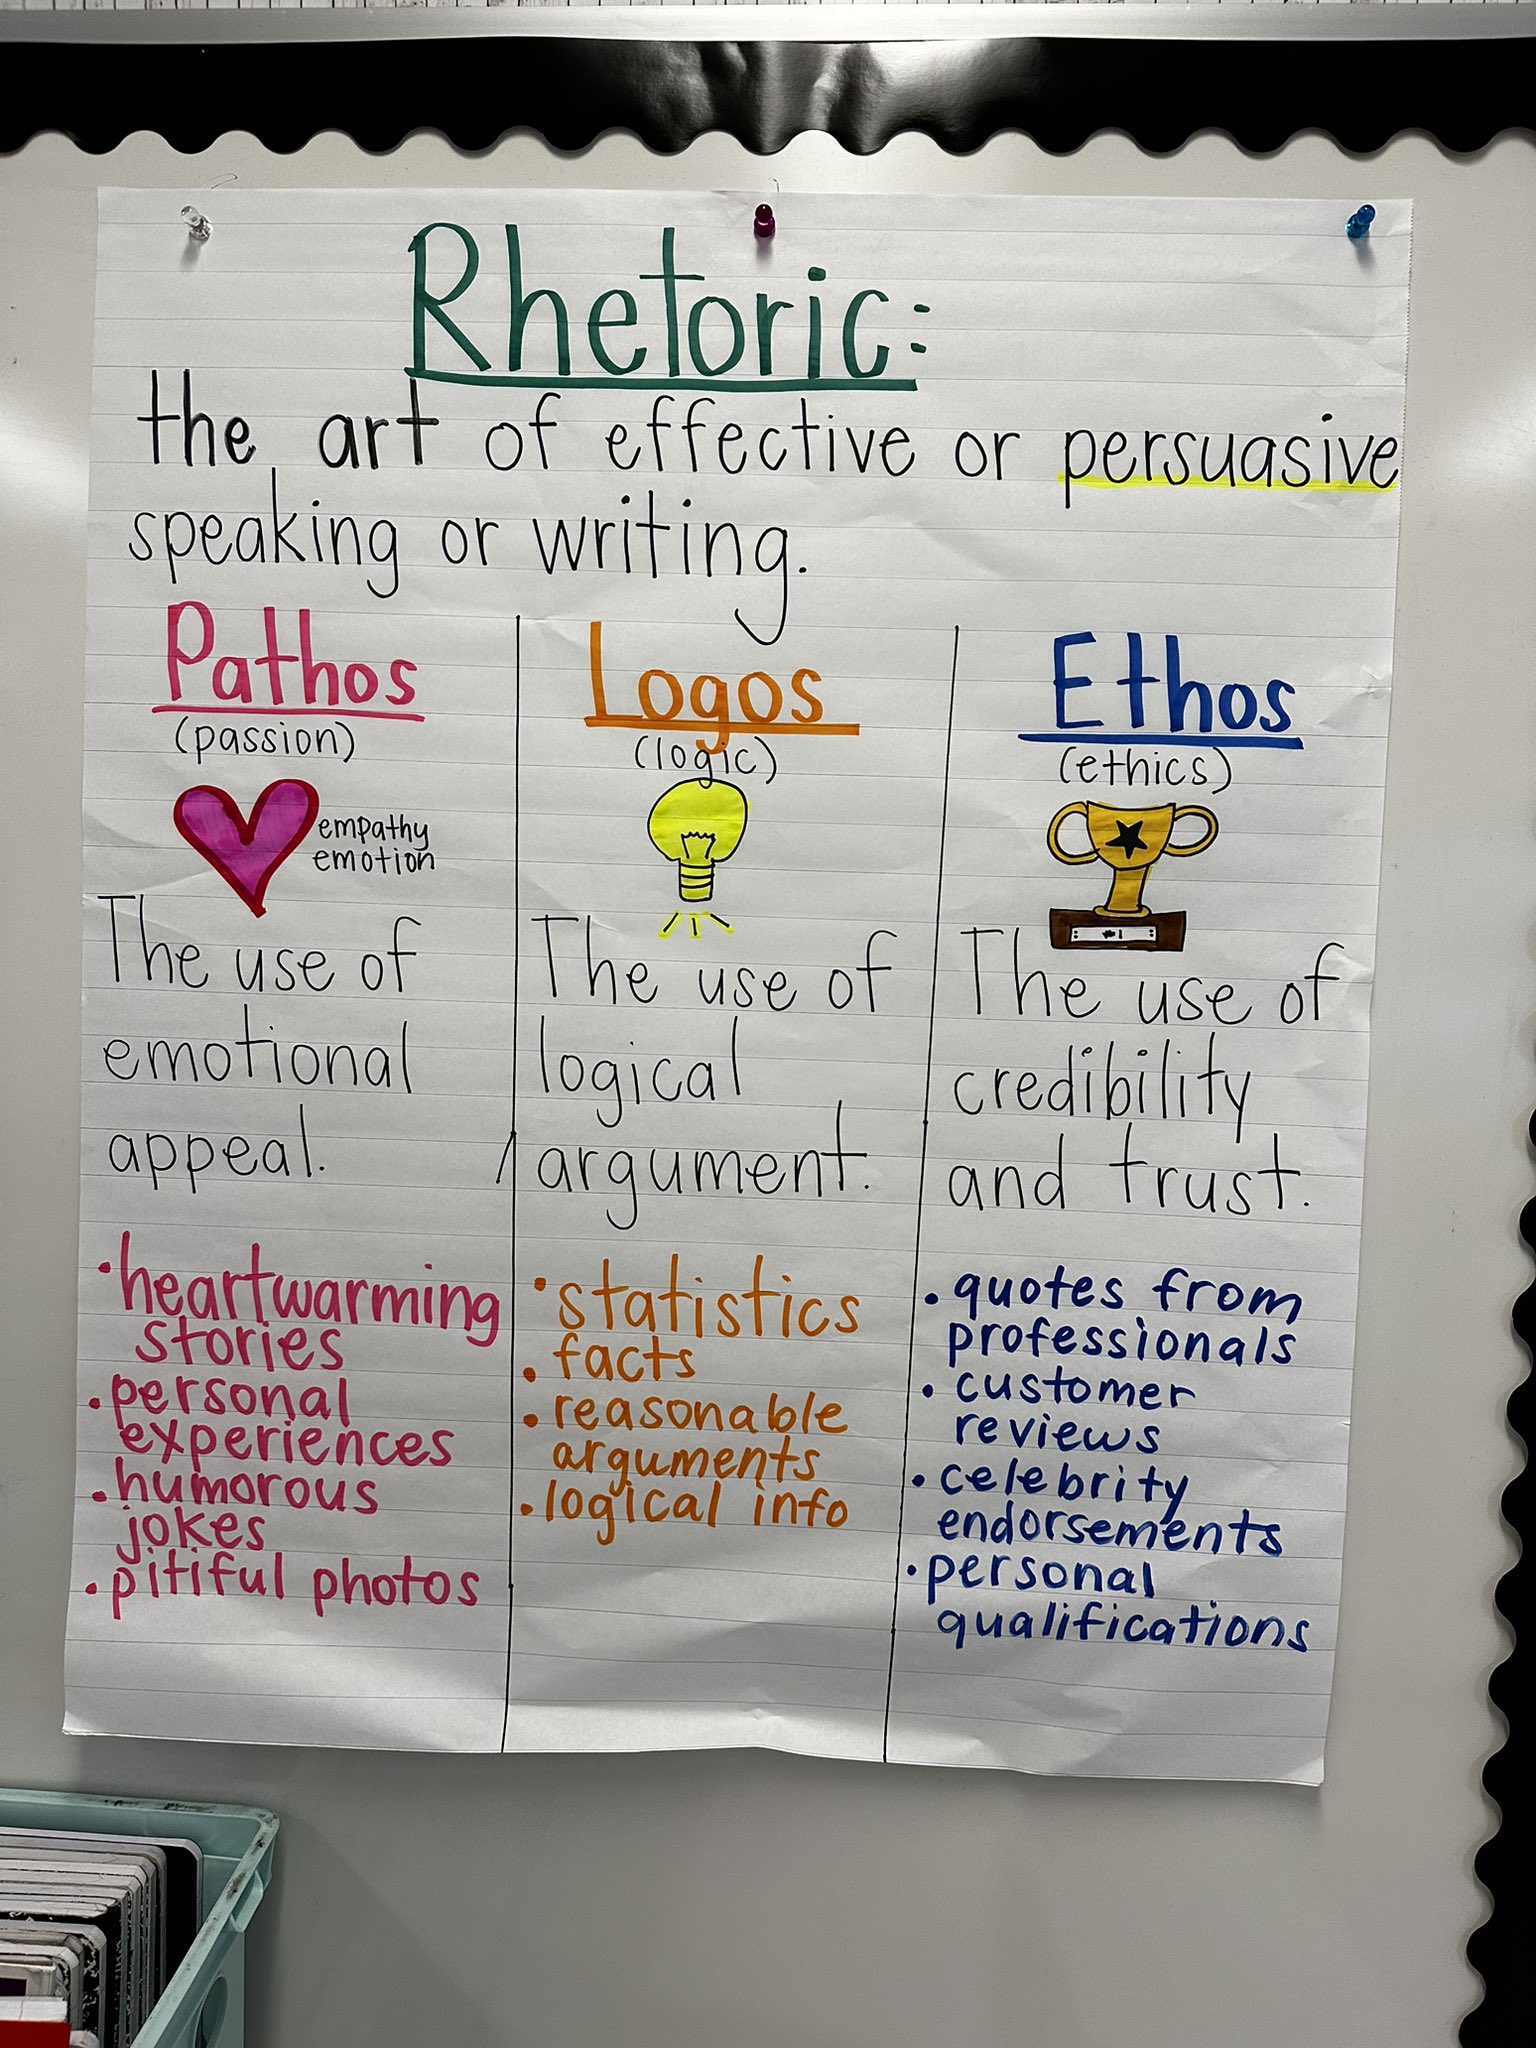 Rhetoric:
the art of effective or persuasive
speaking or writing.
Pathos
(passion)
empathy
emotion
The use of
emotional
appeal.
• heartwarming
stories
• personal
experiences
• humorous
jokes
• pitiful photos
Logos
(logic)
The use of
logical
argument.
• statistics
• facts
• reasonable
arguments
• logical info
Ethos
(ethics)
#1
The use of
credibility
and trust.
• quotes from
professionals
• customer
reviews
• celebrity
endorsements
• personal
qualifications